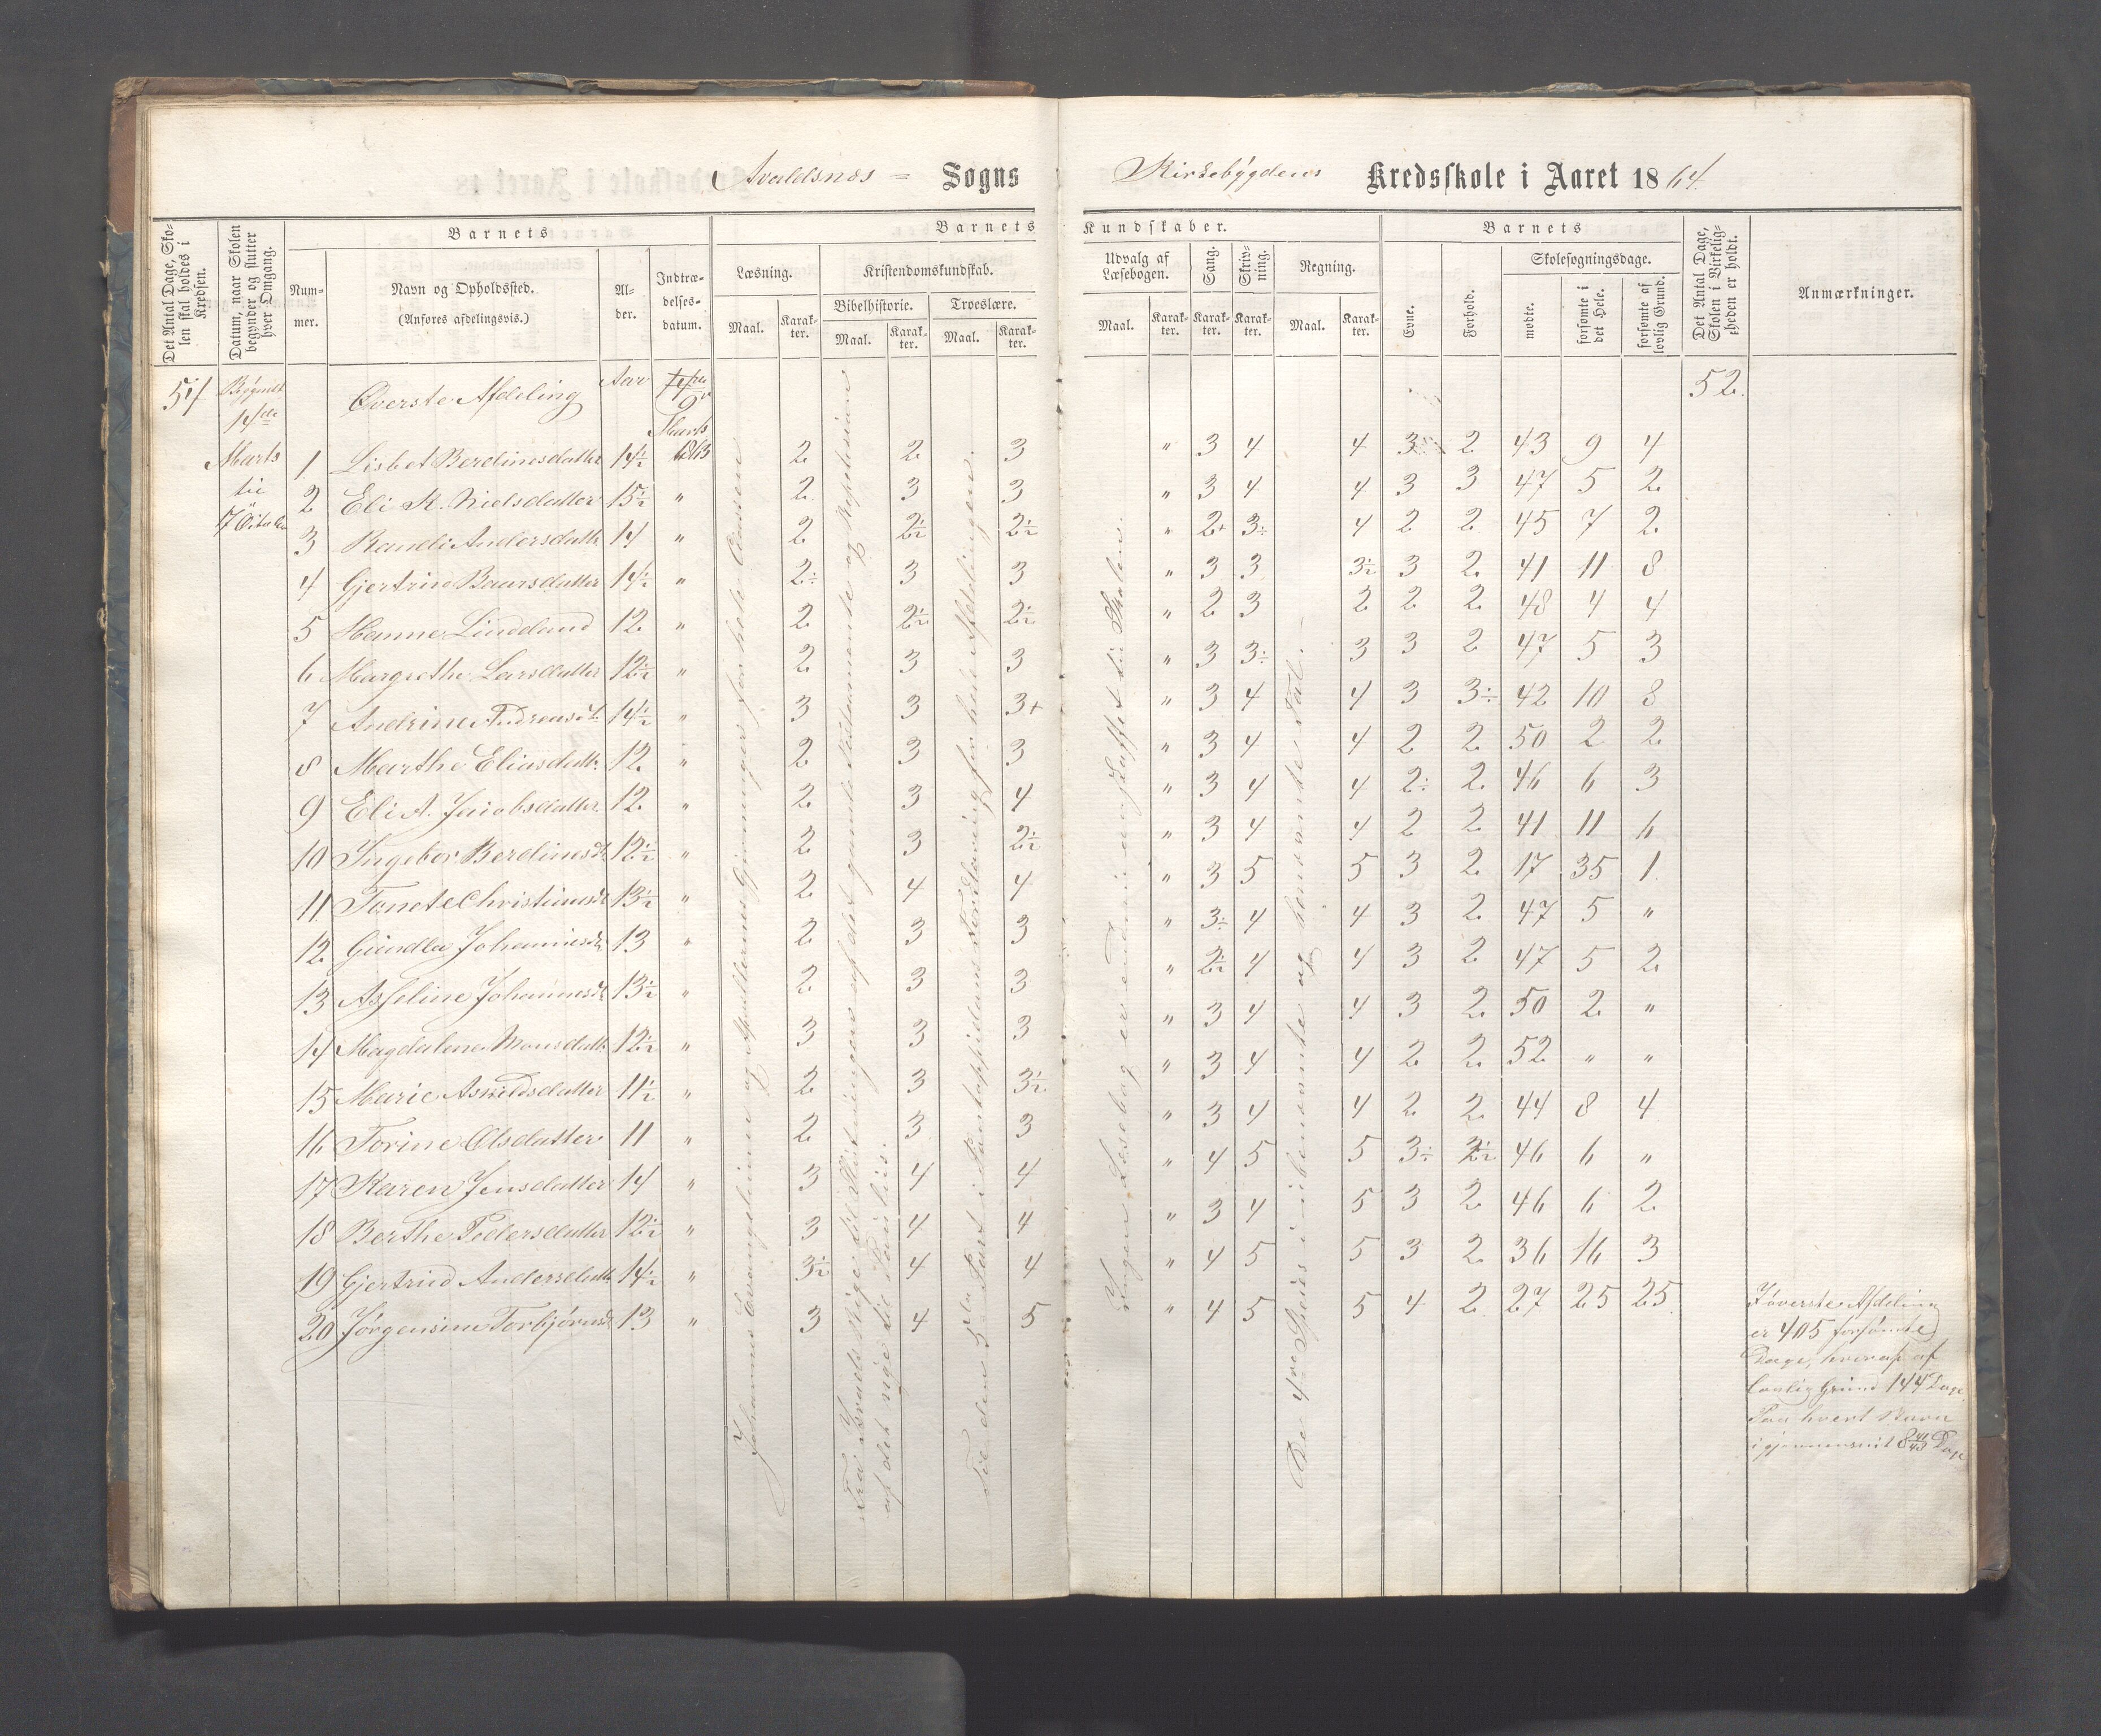 Avaldsnes = Sogns Kirkebygdens Kredsskole i Aaret 1864.
Det Antal Dage, Skolen skal holdes i Kredsen.
Datum, naar Skolen begynder og slutter hver Omgang.
Barnets
Nummer.
Navn og Opholdssted.
(Anføres afdelingsvis.)
Alder.
Indtrædelsesdatum.
Barnets Kundskaber.
Læsning.
Kristendomskundskab.
Bibelhistorie.
Troeslære.
Maal. Karakter. Maal. Karakter. Maal. Karakter.
Udvalg af Læsebogen.
Sang.
Skrivning.
Regning.
Maal. Karakter. Karakter. Karakter. Maal. Karakter.
Barnets
Evne.
Forhold.
Skolesøgningsdage.
mødte.
forsømte i det Hele.
forsømte af lovlig Grund.
Det Antal Dage, Skolen i Virkeligheden er holdt.
Anmærkninger.
54 Begyndt 14de Marts til Överste Afdeling Aar Marts 1863 52.
1 Lisbet Berdinesdatter 14½ 2 2 3 " 3 4 4 3 2 43 9 4
2 Eli K. Nielsdatter 15½ " 2 3 3 " 3 4 4 3 3 47 5 2
3 Randi Andersdatt 14 " 2 2½ 2½ " 2+ 3÷ 4 2 2 45 7 2
4 Gjertrine Baarsdatter 14½ " 2÷ 3 3 " 3 3 3½ 3 2 41 11 8
5 Hanne Lindeland 12 " 2 2½ 2½ " 2 3 2 2 2 48 4 4
6 Margrethe Larsdatter 12½ " 2 3 3 " 3 3÷ 3 3 2 47 5 3
7 Andrine Andreasd. 14½ " 3 3 3+ " 3 4 4 3 3÷ 42 10 8
8 Marthe Eliasdatt. 12 " 2 3 3 " 3 4 4 2 2 50 2 2
9 Eli A. Jacobsdatter 12 " 2 3 4 " 3 4 4 2÷ 2 46 6 3
10 Ingebor Berdinesd. 12½ " 2 3 2½ " 3 4 4 2 2 41 11 6
11 Tonete Christiansd. 13½ " 2 4 4 " 3 5 5 3 2 17 35 1
12 Gundla Johannesd. 13 " 2 3 3 " 3÷ 4 4 3 2 47 5 "
13 Asseline Johannesd. 13½ " 2 3 3 " 2½ 4 4 3 2 47 5 2
14 Magdalena Monsdatt. 12½ " 3 3 3 " 3 4 4 3 2 50 2 "
15 Marie Asvildsdatter 11½ " 2 3 3½ " 3 4 4 2 2 52 " "
16 Torine Olsdatter 11 " 2 3 3 " 3 4 4 2 2 44 8 4
17 Karen Jensdatter 14 " 3 4 4 " 4 5 5 3÷ 2½ 46 6 "
18 Berthe Pedersdatter 12½ " 3 4 4 " 3 4 5 3 2 46 6 2
19 Gjertrud Andersdatt 14½ " 3½ 4 4 " 4 5 5 3 2 36 16 3
20 Jørgensine Torbjørnsd. 13 " 3 4 5 " 4 5 5 4 2 27 25 25
Johannes Evangelium og Apostlernes Gjerninger for hele Classen
Fra Israels Rige til Slutningen af det gamle Testamente og Repetition
af det nye til Paulus.
Til den 5te Part i Pontoppidans Forklaring for hele Afdelingen.
Ingen Læsebog er endnu anskaffet til Skolen.
De 4re Species i ubenævnte og benævnte Tal.
I överste Afdeling
er 405 forsømte
Dage, hvoraf af
lovlig Grund 144 Dage
Paa hvert Barn
igjennemsnit 8 Dage